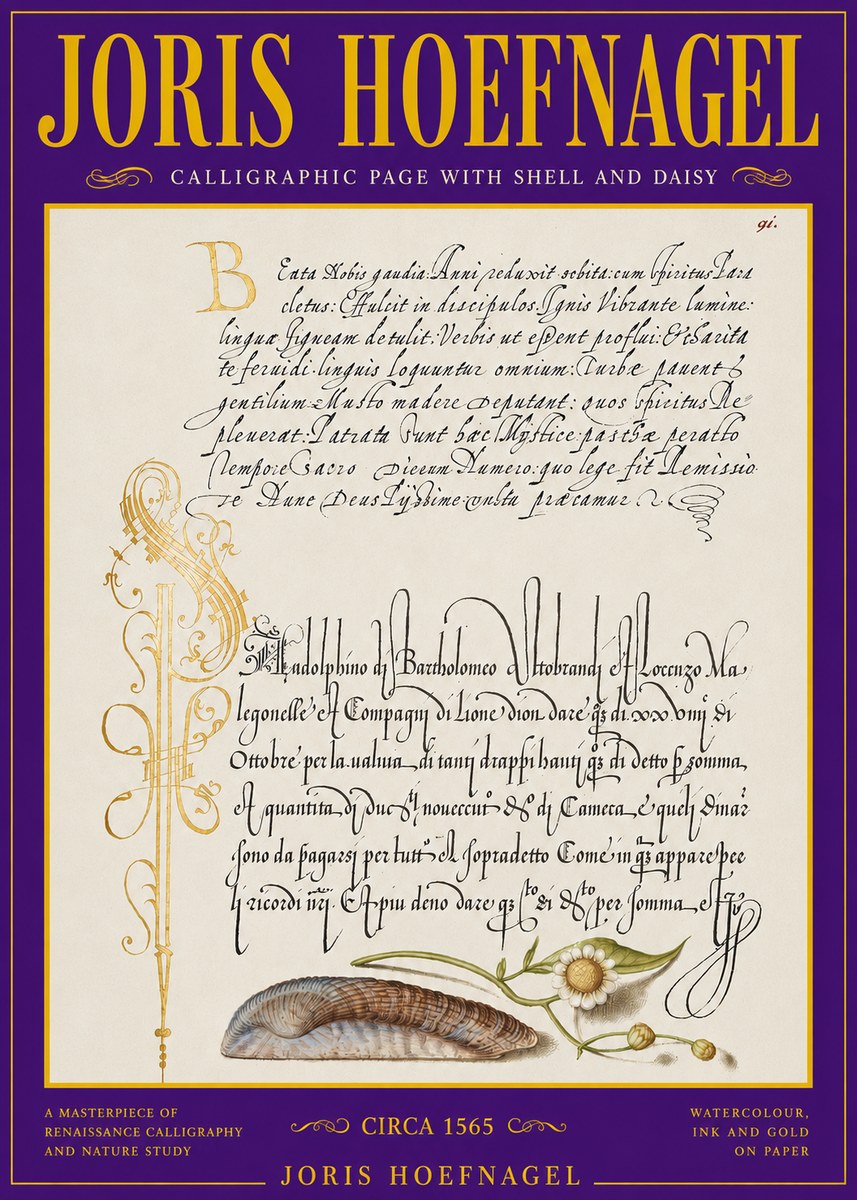 JORIS HOEFNAGEL
CALLIGRAPHIC PAGE WITH SHELL AND DAISY
91.
BEata Nobis gaudia: Anni reduxit orbita: cum spiritus Para
cletus: Effulcit in discipulos. Ignis Vibrante lumine:
linguæ figueam detulit: Verbis ut essent proflui: Et Charita
te feruidi. linguis loquuntur omnium: Turbæ pauent
gentilium Musto madere deputant: quos spiritus Re=
pleuerat: Patrata Sunt hæc Mystice: paschæ peracto
tempore Sacro Dierum Numero: quo lege fit Remissio
Nunc Deus Pijssime vultu præcamur
Radolphino di Bartholomeo Ottobrandi et Lorenzo Ma
legonelle et Compagni di Lione dion dare di. xxviiij di
Ottobre per la.valuta di tanti drappi hauti di detto somma
et quantita di duc noueccut di Camera e queli dinar
sono da pagarsi per tutto el sopradetto Come in appare per
li ricordi nrj. Et piu deno dare di per somma et
A MASTERPIECE OF
RENAISSANCE CALLIGRAPHY
AND NATURE STUDY
CIRCA 1565
WATERCOLOUR,
INK AND GOLD
ON PAPER
JORIS HOEFNAGEL